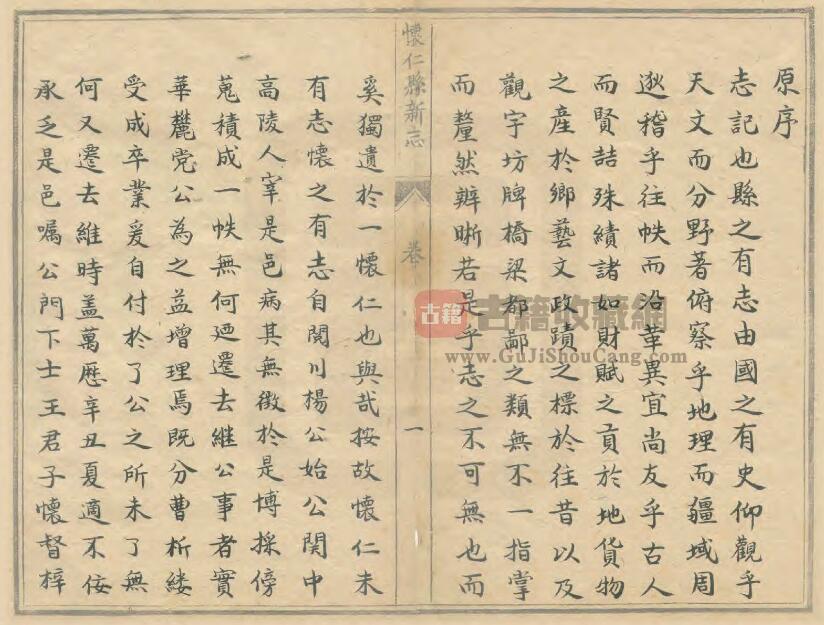 原序
志記也縣之有志由國之有史仰觀乎
天文而分野著俯察乎地理而疆域周
逖稽乎往帙而沿革異宜尚友乎古人
而賢喆殊績諸如財賦之貢於地貨物
之產於鄉藝文政蹟之標於往昔以及
觀宇坊牌橋梁都鄙之類無不一指掌
而釐然辨晣若是乎志之不可無也而
懷仁縣新志
卷
一
奚獨遺於一懷仁也與哉按故懷仁未
有志懷之有志自関川楊公始公関中
高陵人宰是邑病其無徵於是博採傍
蒐積成一帙無何廼遷去繼公事者實
華麓党公為之益增理焉既分曹析縷
受成卒業爰自付於了公之所未了無
何又遷去維時盖萬歷辛丑夏適不佞
承乏是邑嘱公門下士王君子懷督梓
古籍
古籍收藏網
www.GuJiShouCang.com